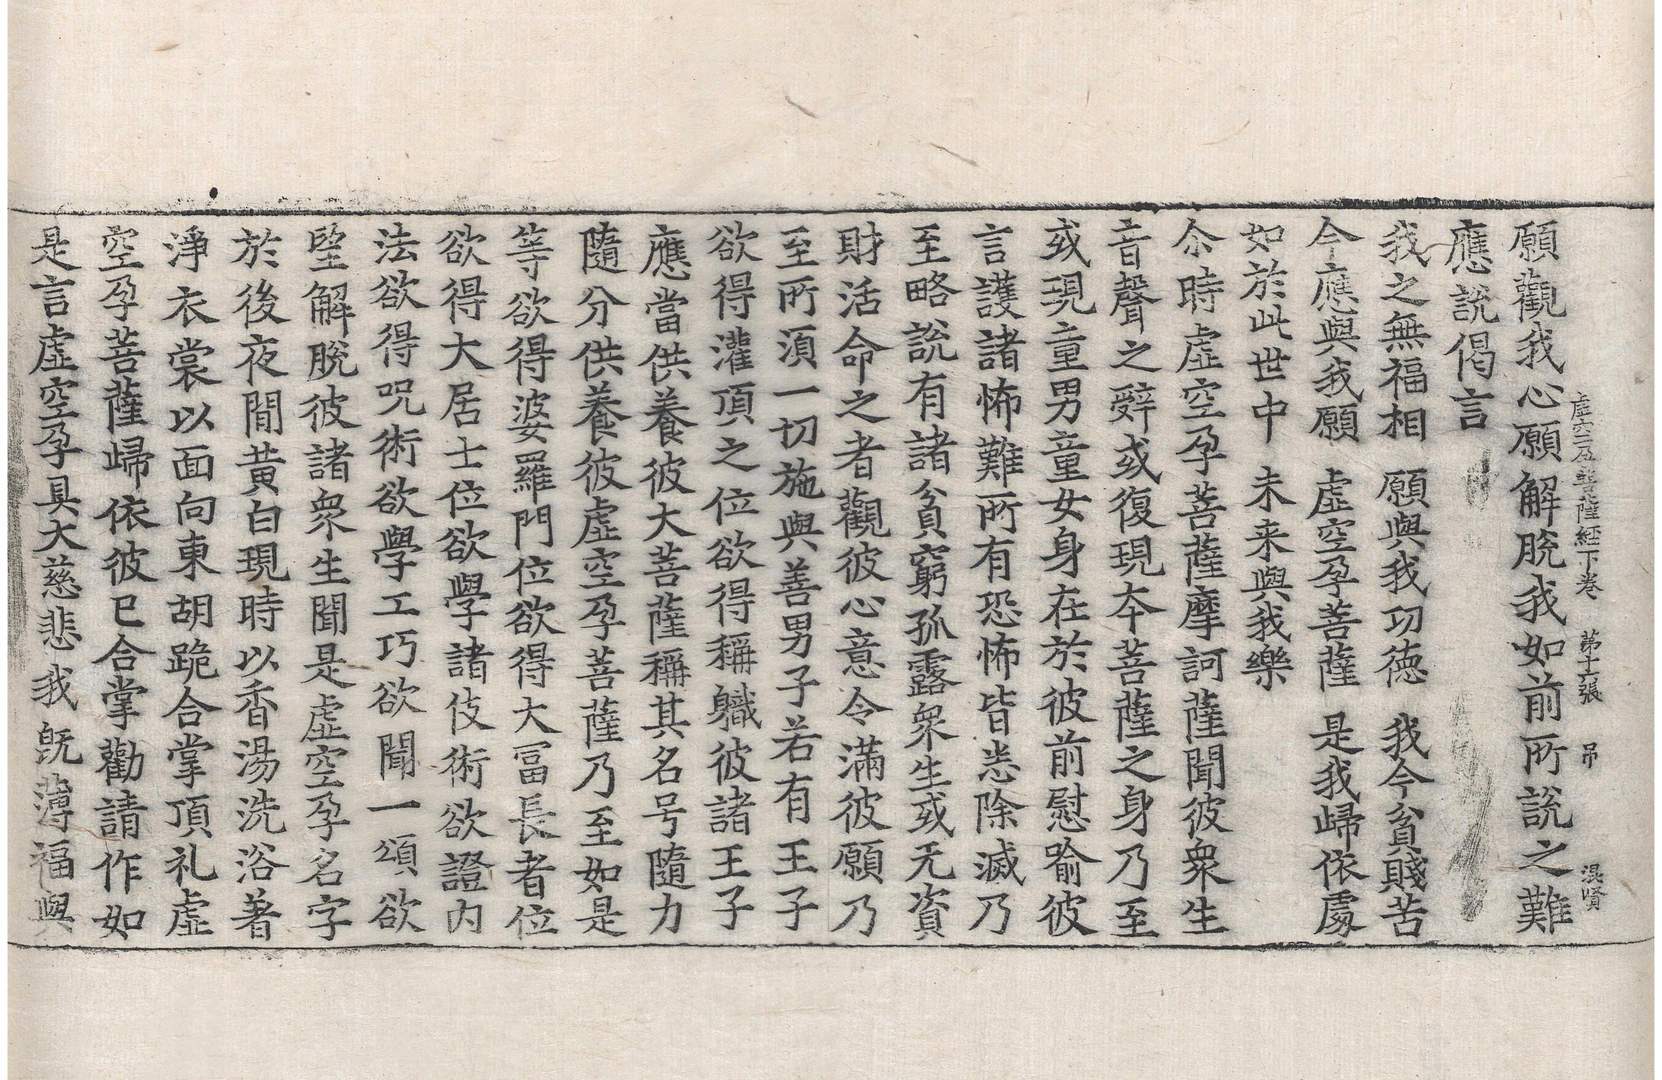 虛空孕菩薩經下卷　第十六張　吊　混賢
願觀我心願解脫我如前所說之難
應說偈言
我之無福相　願與我功德　我今貧賤苦
今應與我願　虛空孕菩薩　是我歸依處
如於此世中　未来與我樂
尒時虛空孕菩薩摩訶薩聞彼衆生
音聲之辝或復現夲菩薩之身乃至
或現童男童女身在於彼前慰喻彼
言護諸怖難所有恐怖皆悉除滅乃
至略說有諸貧窮孤露衆生或无資
財活命之者觀彼心意令滿彼願乃
至所湏一切施與善男子若有王子
欲得灌頂之位欲得稱軄彼諸王子
應當供養彼大菩薩稱其名号隨力
隨分供養彼虛空孕菩薩乃至如是
等欲得婆羅門位欲得大冨長者位
欲得大居士位欲學諸伎術欲證内
法欲得呪術欲學工巧欲聞一頌欲
望解脫彼諸衆生聞是虛空孕名字
於後夜閒黄白現時以香湯洗浴著
淨衣裳以面向東胡跪合掌頂礼虛
空孕菩薩歸依彼已合掌勸請作如
是言虛空孕具大慈悲我旣薄福與